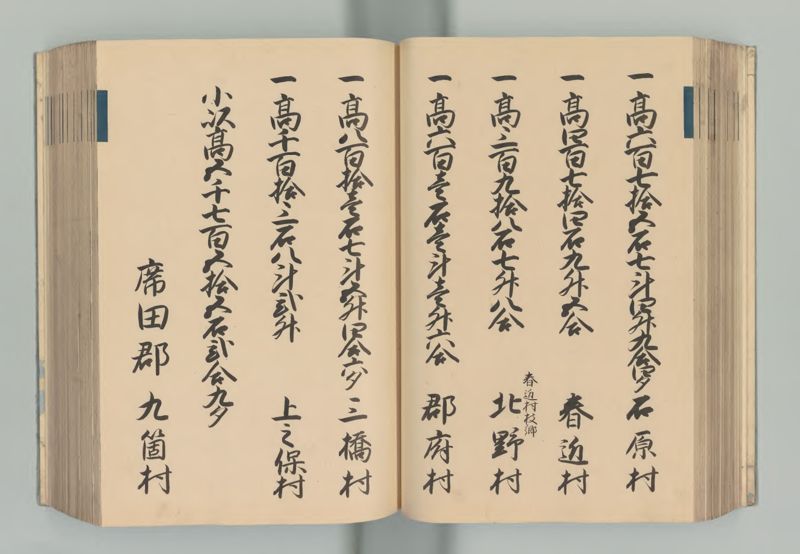 一高六百七拾五石七斗四升九合四夕 石原村
一高四百七拾四石九升五合 春近村
春近村枝郷
一高三百九拾八石七升八合 北野村
一高六百壱石壱斗壱升六合 郡府村
一高八百拾壱石七斗五升四合六夕 三橋村
一高千百拾三石八斗弐升 上之保村
小以高五千七百五拾五石弐合九夕
席田郡 九箇村